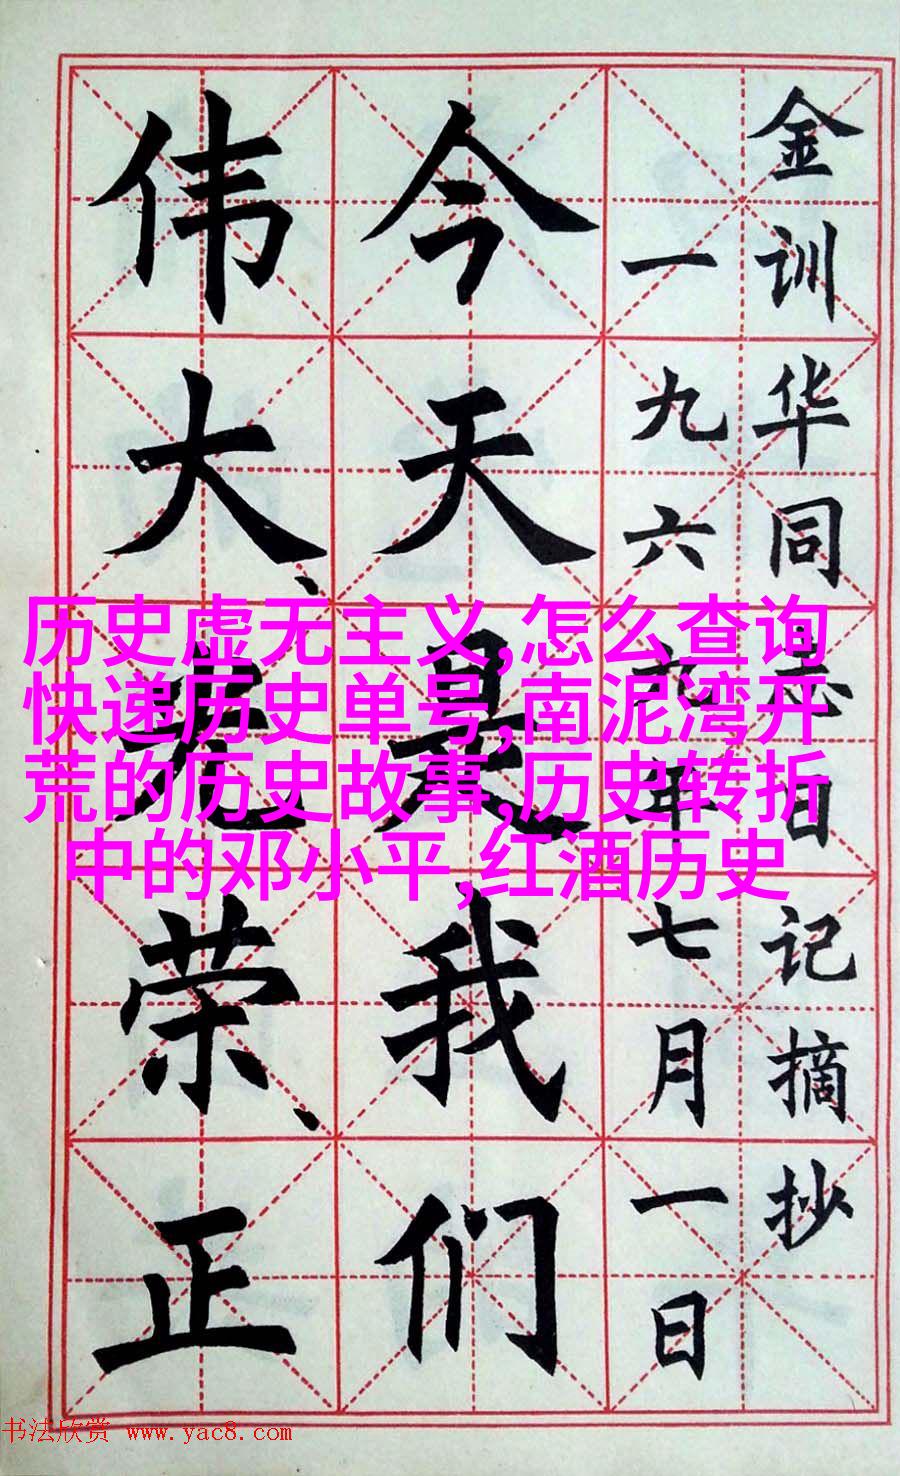 金训华同志日记摘抄
一九六年七月一日
今天是我们
伟大、光荣、正
历史虚无主义,怎么查询
快递历史单号,南泥湾开
荒的历史故事,历史转折
中的邓小平,红酒历史
书法欣赏 www.yac8.com